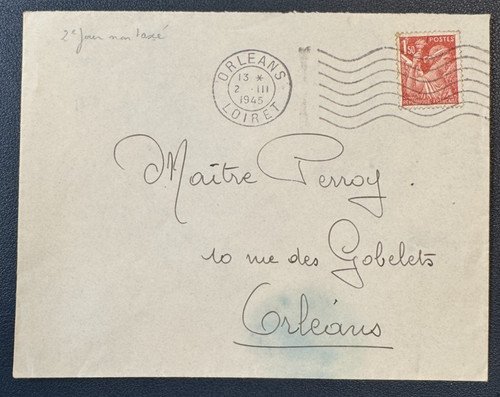 2e jour non taxé
ORLEANS
13 *
2 III
1945
LOIRET
1F50
POSTES
Maître Perroy.
10 rue des Gobelets
Orléans